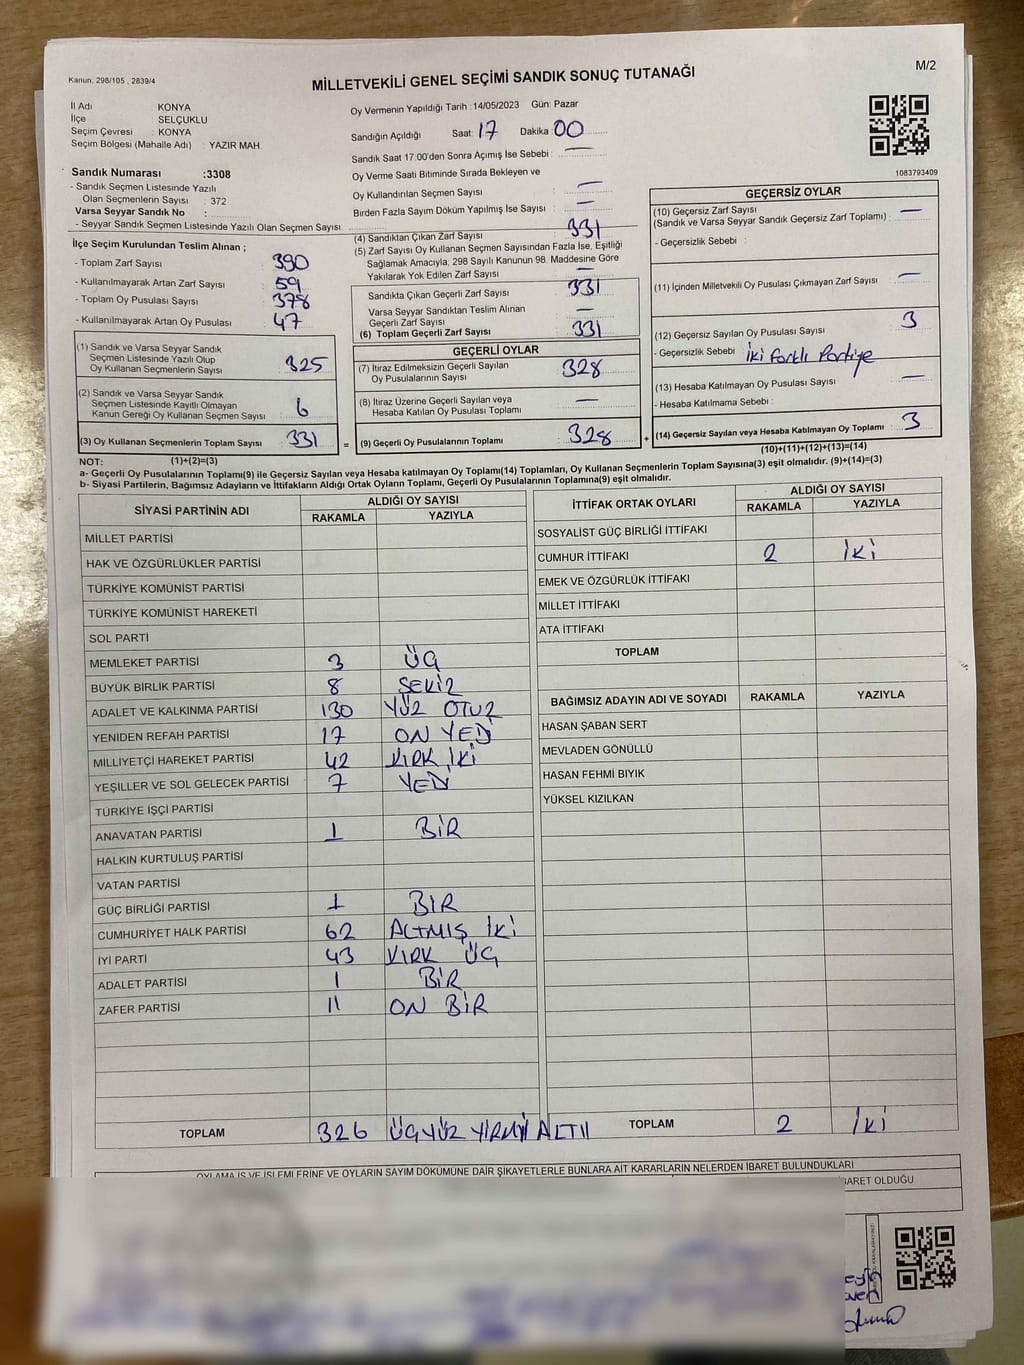 Kanun: 298/105 , 2839/4
M/2
MİLLETVEKİLİ GENEL SEÇİMİ SANDIK SONUÇ TUTANAĞI
İl Adı KONYA
İlçe SELÇUKLU
Seçim Çevresi : KONYA
Seçim Bölgesi (Mahalle Adı) : YAZIR MAH.
Oy Vermenin Yapıldığı Tarih :14/05/2023 Gün: Pazar
Sandığın Açıldığı Saat: 17 Dakika 00
Sandık Saat 17:00'den Sonra Açımış İse Sebebi : —
Oy Verme Saati Bitiminde Sırada Bekleyen ve
Oy Kullandırılan Seçmen Sayısı : —
Birden Fazla Sayım Döküm Yapılmış İse Sayısı : —
1083793409
Sandık Numarası :3308
- Sandık Seçmen Listesinde Yazılı
Olan Seçmenlerin Sayısı : 372
Varsa Seyyar Sandık No :
- Seyyar Sandık Seçmen Listesinde Yazılı Olan Seçmen Sayısı
İlçe Seçim Kurulundan Teslim Alınan ;
- Toplam Zarf Sayısı : 390
- Kullanılmayarak Artan Zarf Sayısı : 59
- Toplam Oy Pusulası Sayısı : 378
- Kullanılmayarak Artan Oy Pusulası : 47
(1) Sandık ve Varsa Seyyar Sandık
Seçmen Listesinde Yazılı Olup
Oy Kullanan Seçmenlerin Sayısı : 325
(2) Sandık ve Varsa Seyyar Sandık
Seçmen Listesinde Kayıtlı Olmayan
Kanun Gereği Oy Kullanan Seçmen Sayısı : 6
(3) Oy Kullanan Seçmenlerin Toplam Sayısı : 331
(4) Sandıktan Çıkan Zarf Sayısı : 331
(5) Zarf Sayısı Oy Kullanan Seçmen Sayısından Fazla İse, Eşitliği
Sağlamak Amacıyla, 298 Sayılı Kanunun 98. Maddesine Göre
Yakılarak Yok Edilen Zarf Sayısı : —
Sandıkta Çıkan Geçerli Zarf Sayısı : 331
Varsa Seyyar Sandıktan Teslim Alınan
Geçerli Zarf Sayısı : —
(6) Toplam Geçerli Zarf Sayısı : 331
GEÇERLİ OYLAR
(7) İtiraz Edilmeksizin Geçerli Sayılan
Oy Pusulalarının Sayısı : 328
(8) İtiraz Üzerine Geçerli Sayılan veya
Hesaba Katılan Oy Pusulası Toplamı : —
= (9) Geçerli Oy Pusulalarının Toplamı : 328 +
GEÇERSİZ OYLAR
(10) Geçersiz Zarf Sayısı
(Sandık ve Varsa Seyyar Sandık Geçersiz Zarf Toplamı) : —
- Geçersizlik Sebebi :
(11) İçinden Milletvekili Oy Pusulası Çıkmayan Zarf Sayısı : —
(12) Geçersiz Sayılan Oy Pusulası Sayısı : 3
- Geçersizlik Sebebi : iki farklı Partiye
(13) Hesaba Katılmayan Oy Pusulası Sayısı : —
- Hesaba Katılmama Sebebi :
(14) Geçersiz Sayılan veya Hesaba Katılmayan Oy Toplamı : 3
NOT: (1)+(2)=(3)
(10)+(11)+(12)+(13)=(14)
a- Geçerli Oy Pusulalarının Toplamı(9) ile Geçersiz Sayılan veya Hesaba Katılmayan Oy Toplamı(14) Toplamları, Oy Kullanan Seçmenlerin Toplam Sayısına(3) eşit olmalıdır. (9)+(14)=(3)
b- Siyasi Partilerin, Bağımsız Adayların ve İttifakların Aldığı Ortak Oyların Toplamı, Geçerli Oy Pusulalarının Toplamına(9) eşit olmalıdır.
SİYASİ PARTİNİN ADI ALDIĞI OY SAYISI
RAKAMLA YAZIYLA
MİLLET PARTİSİ
HAK VE ÖZGÜRLÜKLER PARTİSİ
TÜRKİYE KOMÜNİST PARTİSİ
TÜRKİYE KOMÜNİST HAREKETİ
SOL PARTİ
MEMLEKET PARTİSİ 3 ÜÇ
BÜYÜK BİRLİK PARTİSİ 8 SEKİZ
ADALET VE KALKINMA PARTİSİ 130 YÜZ OTUZ
YENİDEN REFAH PARTİSİ 17 ON YEDİ
MİLLİYETÇİ HAREKET PARTİSİ 42 KIRK İKİ
YEŞİLLER VE SOL GELECEK PARTİSİ 7 YEDİ
TÜRKİYE İŞÇİ PARTİSİ
ANAVATAN PARTİSİ 1 BİR
HALKIN KURTULUŞ PARTİSİ
VATAN PARTİSİ
GÜÇ BİRLİĞİ PARTİSİ 1 BIR
CUMHURİYET HALK PARTİSİ 62 ALTMIŞ İKİ
İYİ PARTİ 43 KIRK ÜÇ
ADALET PARTİSİ 1 BİR
ZAFER PARTİSİ 11 ON BİR
TOPLAM 326 ÜÇYÜZ YİRMİ ALTI
İTTİFAK ORTAK OYLARI ALDIĞI OY SAYISI
RAKAMLA YAZIYLA
SOSYALİST GÜÇ BİRLİĞİ İTTİFAKI
CUMHUR İTTİFAKI 2 İki
EMEK VE ÖZGÜRLÜK İTTİFAKI
MİLLET İTTİFAKI
ATA İTTİFAKI
TOPLAM
BAĞIMSIZ ADAYIN ADI VE SOYADI RAKAMLA YAZIYLA
HASAN ŞABAN SERT
MEVLADEN GÖNÜLLÜ
HASAN FEHMİ BIYIK
YÜKSEL KIZILKAN
TOPLAM 2 İki
OYLAMA İŞ VE İŞLEMLERİNE VE OYLARIN SAYIM DÖKÜMÜNE DAİR ŞİKAYETLERLE BUNLARA AİT KARARLARIN NELERDEN İBARET BULUNDUKLARI
BARET OLDUĞU